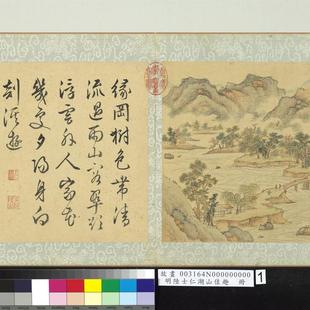 緣岡樹色帶清
流過雨山容翠
浮雲外人家
幾夕陽身向
剡溪遊
故畫 003164N000000000
明陸士仁湖山佳趣 冊
1